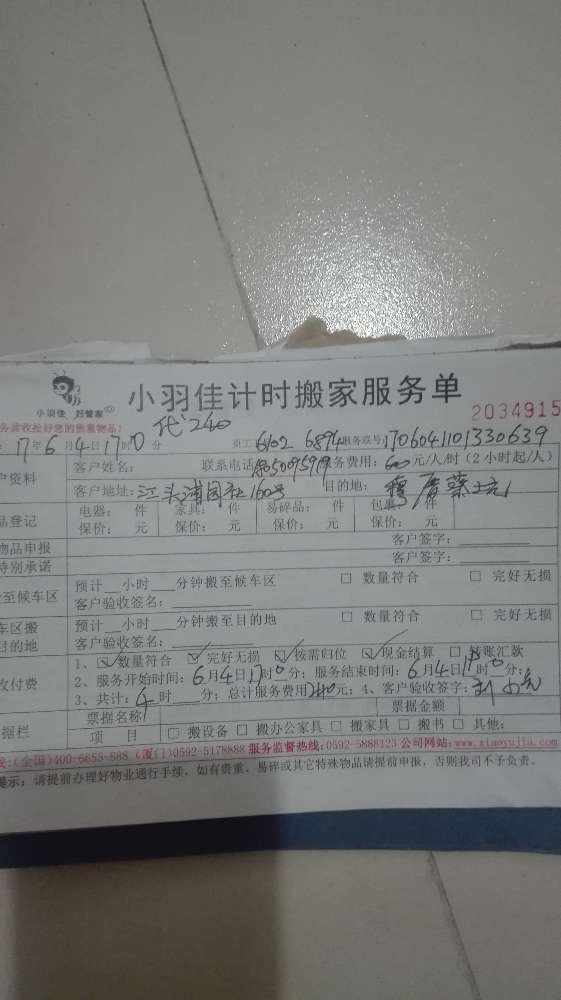 小羽佳 好管家
小羽佳计时搬家服务单
2034915
务前收拾好您的贵重物品!
代240
17年6月4日17时0分 员工 6102 6894 服务联号 170604101330639
户资料 客户姓名: 联系电话 服务费用: 60元/人/时(2小时起/人)
客户地址: 江头浦园社160号 目的地:
品登记 电器: 件 家具: 件 易碎品: 件 包裹: 件
保价: 元 保价: 元 保价: 元 保价: 元
物品申报 客户签字:
特别承诺 客户签字:
至候车区 预计__小时__分钟搬至候车区 □ 数量符合 □ 完好无损
客户验收签名:
车区搬 预计__小时__分钟搬至目的地 □ 数量符合 □ 完好无损
目的地 客户验收签名:
1、☑数量符合 ☑完好无损 ☑按需归位 ☑现金结算 □转账汇款
收付费 2、服务开始时间: 6月4日17时0分; 服务结束时间: 6月4日19时0分;
3、共计: 4时__分; 总计服务费用240元; 4、客户验收签字:
票据名称 票据金额
据栏 项 目 □ 搬设备 □ 搬办公家具 □ 搬家具 □ 搬书 □ 其他:
线:(全国)400-6655-588 (厦门)0592-5178888 服务监督热线:0592-5888123 公司网站:www.xiaoyujia.com
提示: 请提前办理好物业通行手续, 如有贵重、易碎或其它特殊物品请提前申报, 否则我司不予负责。